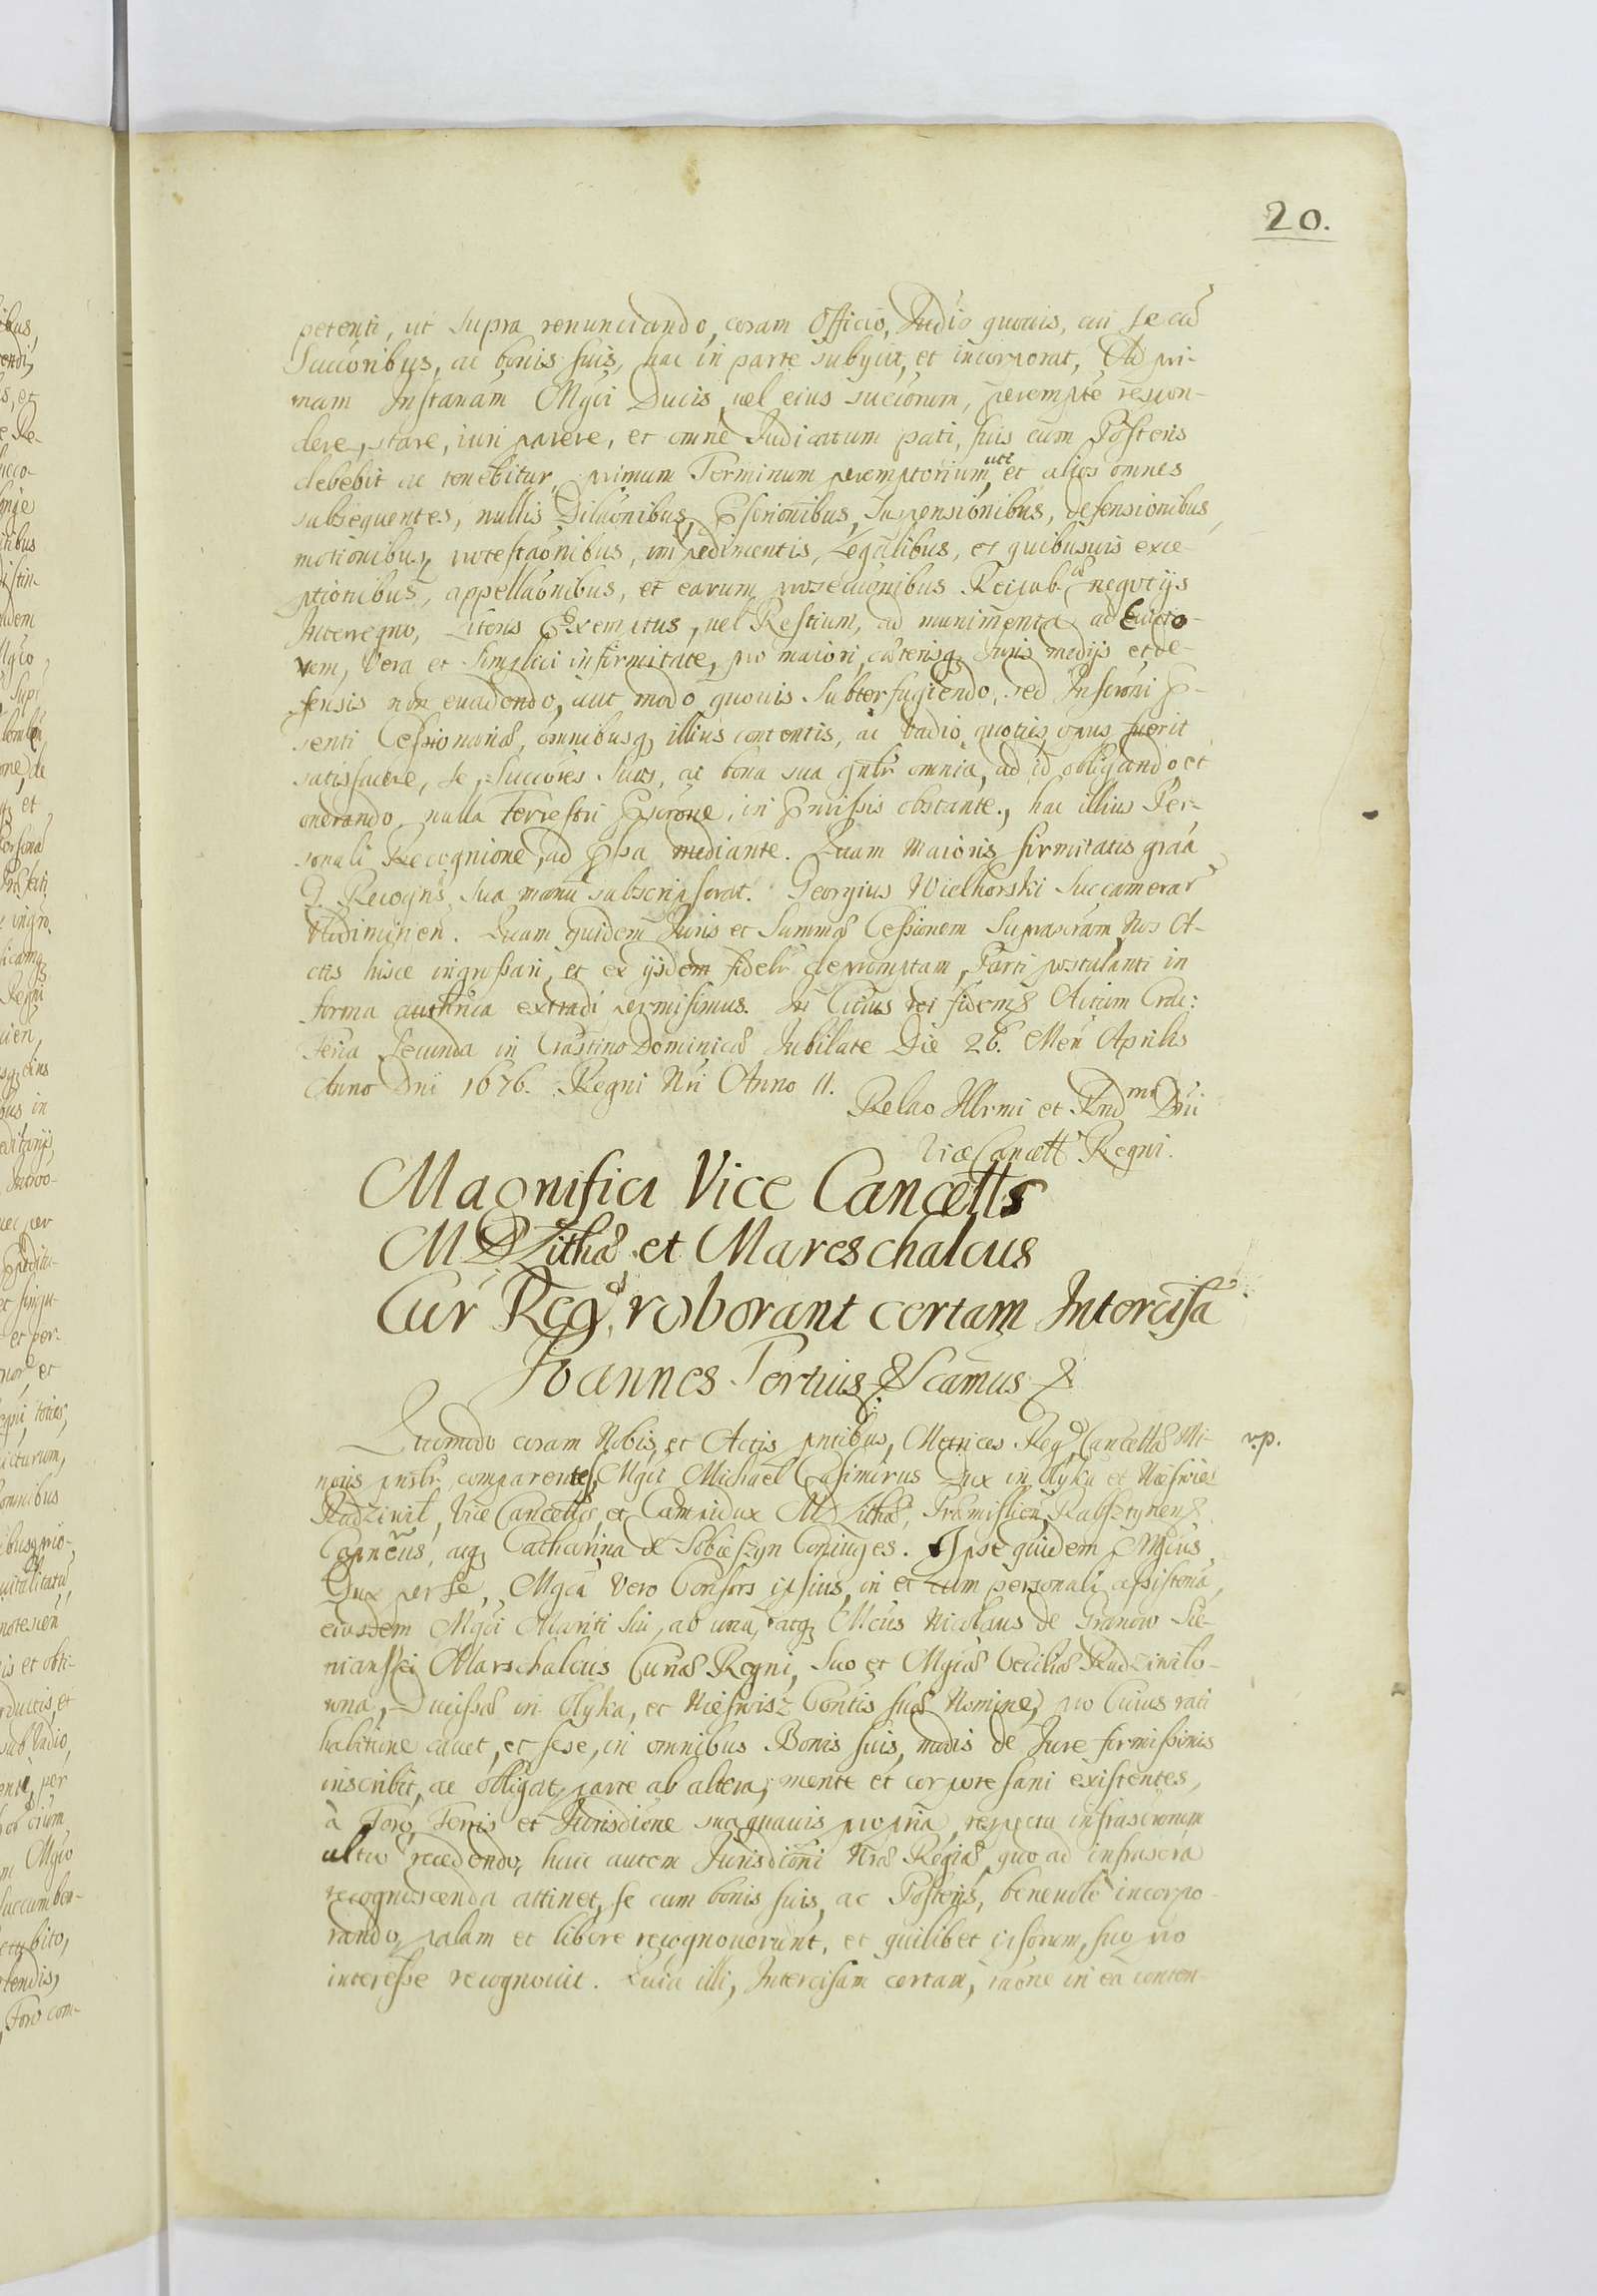 20.
petenti, ut supra renunciando, coram Officio, Iudio quovis, cui se cū
Succoribus, ac bonis suis, hac in parte subijcit, et incorporat, Ad pri-
mam Instanām Mgci Ducis, vel eius succorum, peremptē respon-
dere, stare, iuri parere, et omne Iudicatum pati, suis cum Posteris
debebit ac tenebitur, primum Terminum peremptorium, uti et alios omnes
subsequentes, nullis Dilaōnibus, Pscrionibus, Suspensionibus, defensionibus,
motionibus, protestaōnibus, impedimentis, Legalibus, et quibusvis exce-
ptionibus, appellaōnibus, et earum prosecutionibus Reipub. negotijs
Interregno, Literis Exemptus, vel Restium, ad munimenta, ad Evicto-
rem, Vera et simplici infirmitate, pro maiori, cæterisq, Iuris medijs et de-
fensis non evadendo, aut modo quovis subterfugiendo, sed Inscrōni P-
senti Cessionariæ, omnibusq, illius contentis, ac vadio, quoties opus fuerit
satisfacere, se, Succōres suos, ac bona sua gnlr omnia, ad id obligando et
onerando, nulla Terrestri Pscrōne, in Pmissis obstante, hac illius Per-
sonali Recognione, ad Pssa mediante. Quam Maioris firmitatis graā
Recogns sua manu subscripserat. Georgius Wielhorski Succamerar
Vladimirien. Quam quidem Iuris et Summæ Cessionem Suprascrām, Nos A-
ctis hisce ingrossari, et ex ijsdem fidelr depromptam, Parti postulanti in
forma authnca extradi permisimus. In Cuius rei fidem Actum Crac:
Feria Secunda in Crastino Dominicæ Iubilate Die 26. Men Aprilis
Anno Dni 1676. Regni Nri Anno II.
Relao Illrmi et Rndmi Dni
Vice Cancell Regni.
Magnifici Vice Cancells
M D Lithæ et Mareschalcus
Cur Reg, roborant certam Intercisā
Ioannes Tertius Scāmus
Quomodo coram Nobis, et Actis pntibus, Metrices Reg Cancellæ Mi-
noris pnslr comparentes, Mgci Michael Casimirus Dux in Ołyka et Nieświes
Radziwił, Vice Cancells, et Campidux M D Lithæ, Præmislien, Rabsztynen
Capneus, atq, Catharina de Sobieszyn Coniuges. Ipse quidem Mgcus
Dux per se, Mgca vero Consors ipsius, in et cum personali assistena,
eiusdem Mgci Mariti sui, ab una, atq, Mcus Nicolaus de Granow Sie-
niawski Marschalcus Curiæ Regni, suo et Mgcæ Ceciliæ Radziwilo-
wna, Ducissæ in Ołyka, et Nieswisz Contis suæ Nomine, pro Cuius rati
habitione cavet, et sese, in omnibus Bonis suis, modis de Iure firmissimis
inscribit, ac obligat, parte ab altera, mente et corpore sani existentes,
à Foro, Terris et Iurisdione sua quavis propria, respectu infrascrorum
ultro recedendo, huic autem Iurisdioni Nræ Regiæ, quo ad infrascra
recognoscenda attinet, se cum bonis suis, ac Posteris, benevolè incorpo-
rando, palam et libere recognoverunt, et quilibet eorum, suo pro
interesse recognovit. Quia illi, Intercisam certam, raone in ea conten-
rp.